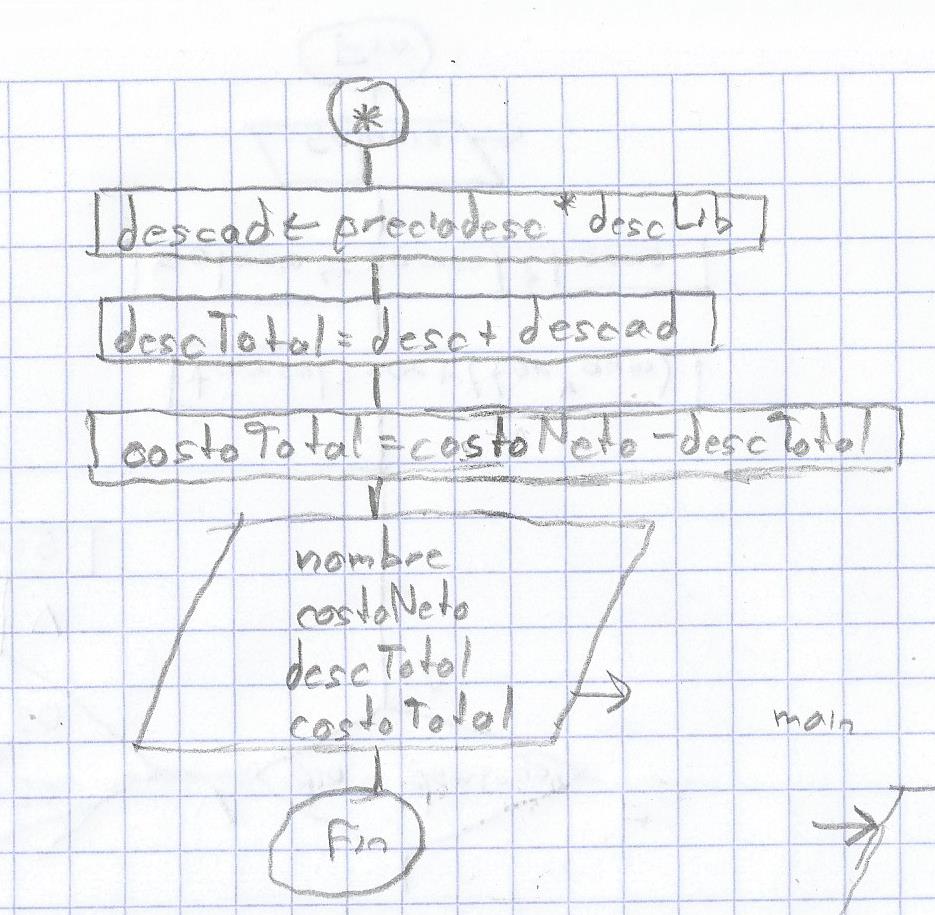 *
descad ← preciodesc * descLib
descTotal = desc + descad
costoTotal = costoNeto - descTotal
nombre
costoNeto
descTotal
costoTotal
main
Fin